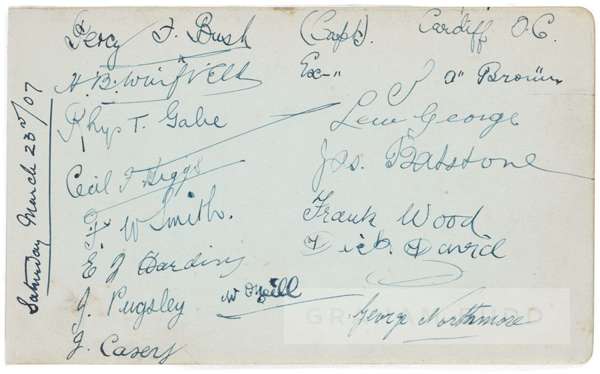 Saturday March 23rd/07
Percy F. Bush (Capt). Cardiff O.C.
H. B. Winfield Ex-"
J. A. Brown
Rhys T. Gabe
Lew George
Cecil F Biggs
Jos. Batstone
W Smith.
Frank Wood
Dick David
E J Harding
J. Pugsley W O'Neill
George Northmore
J. Casey